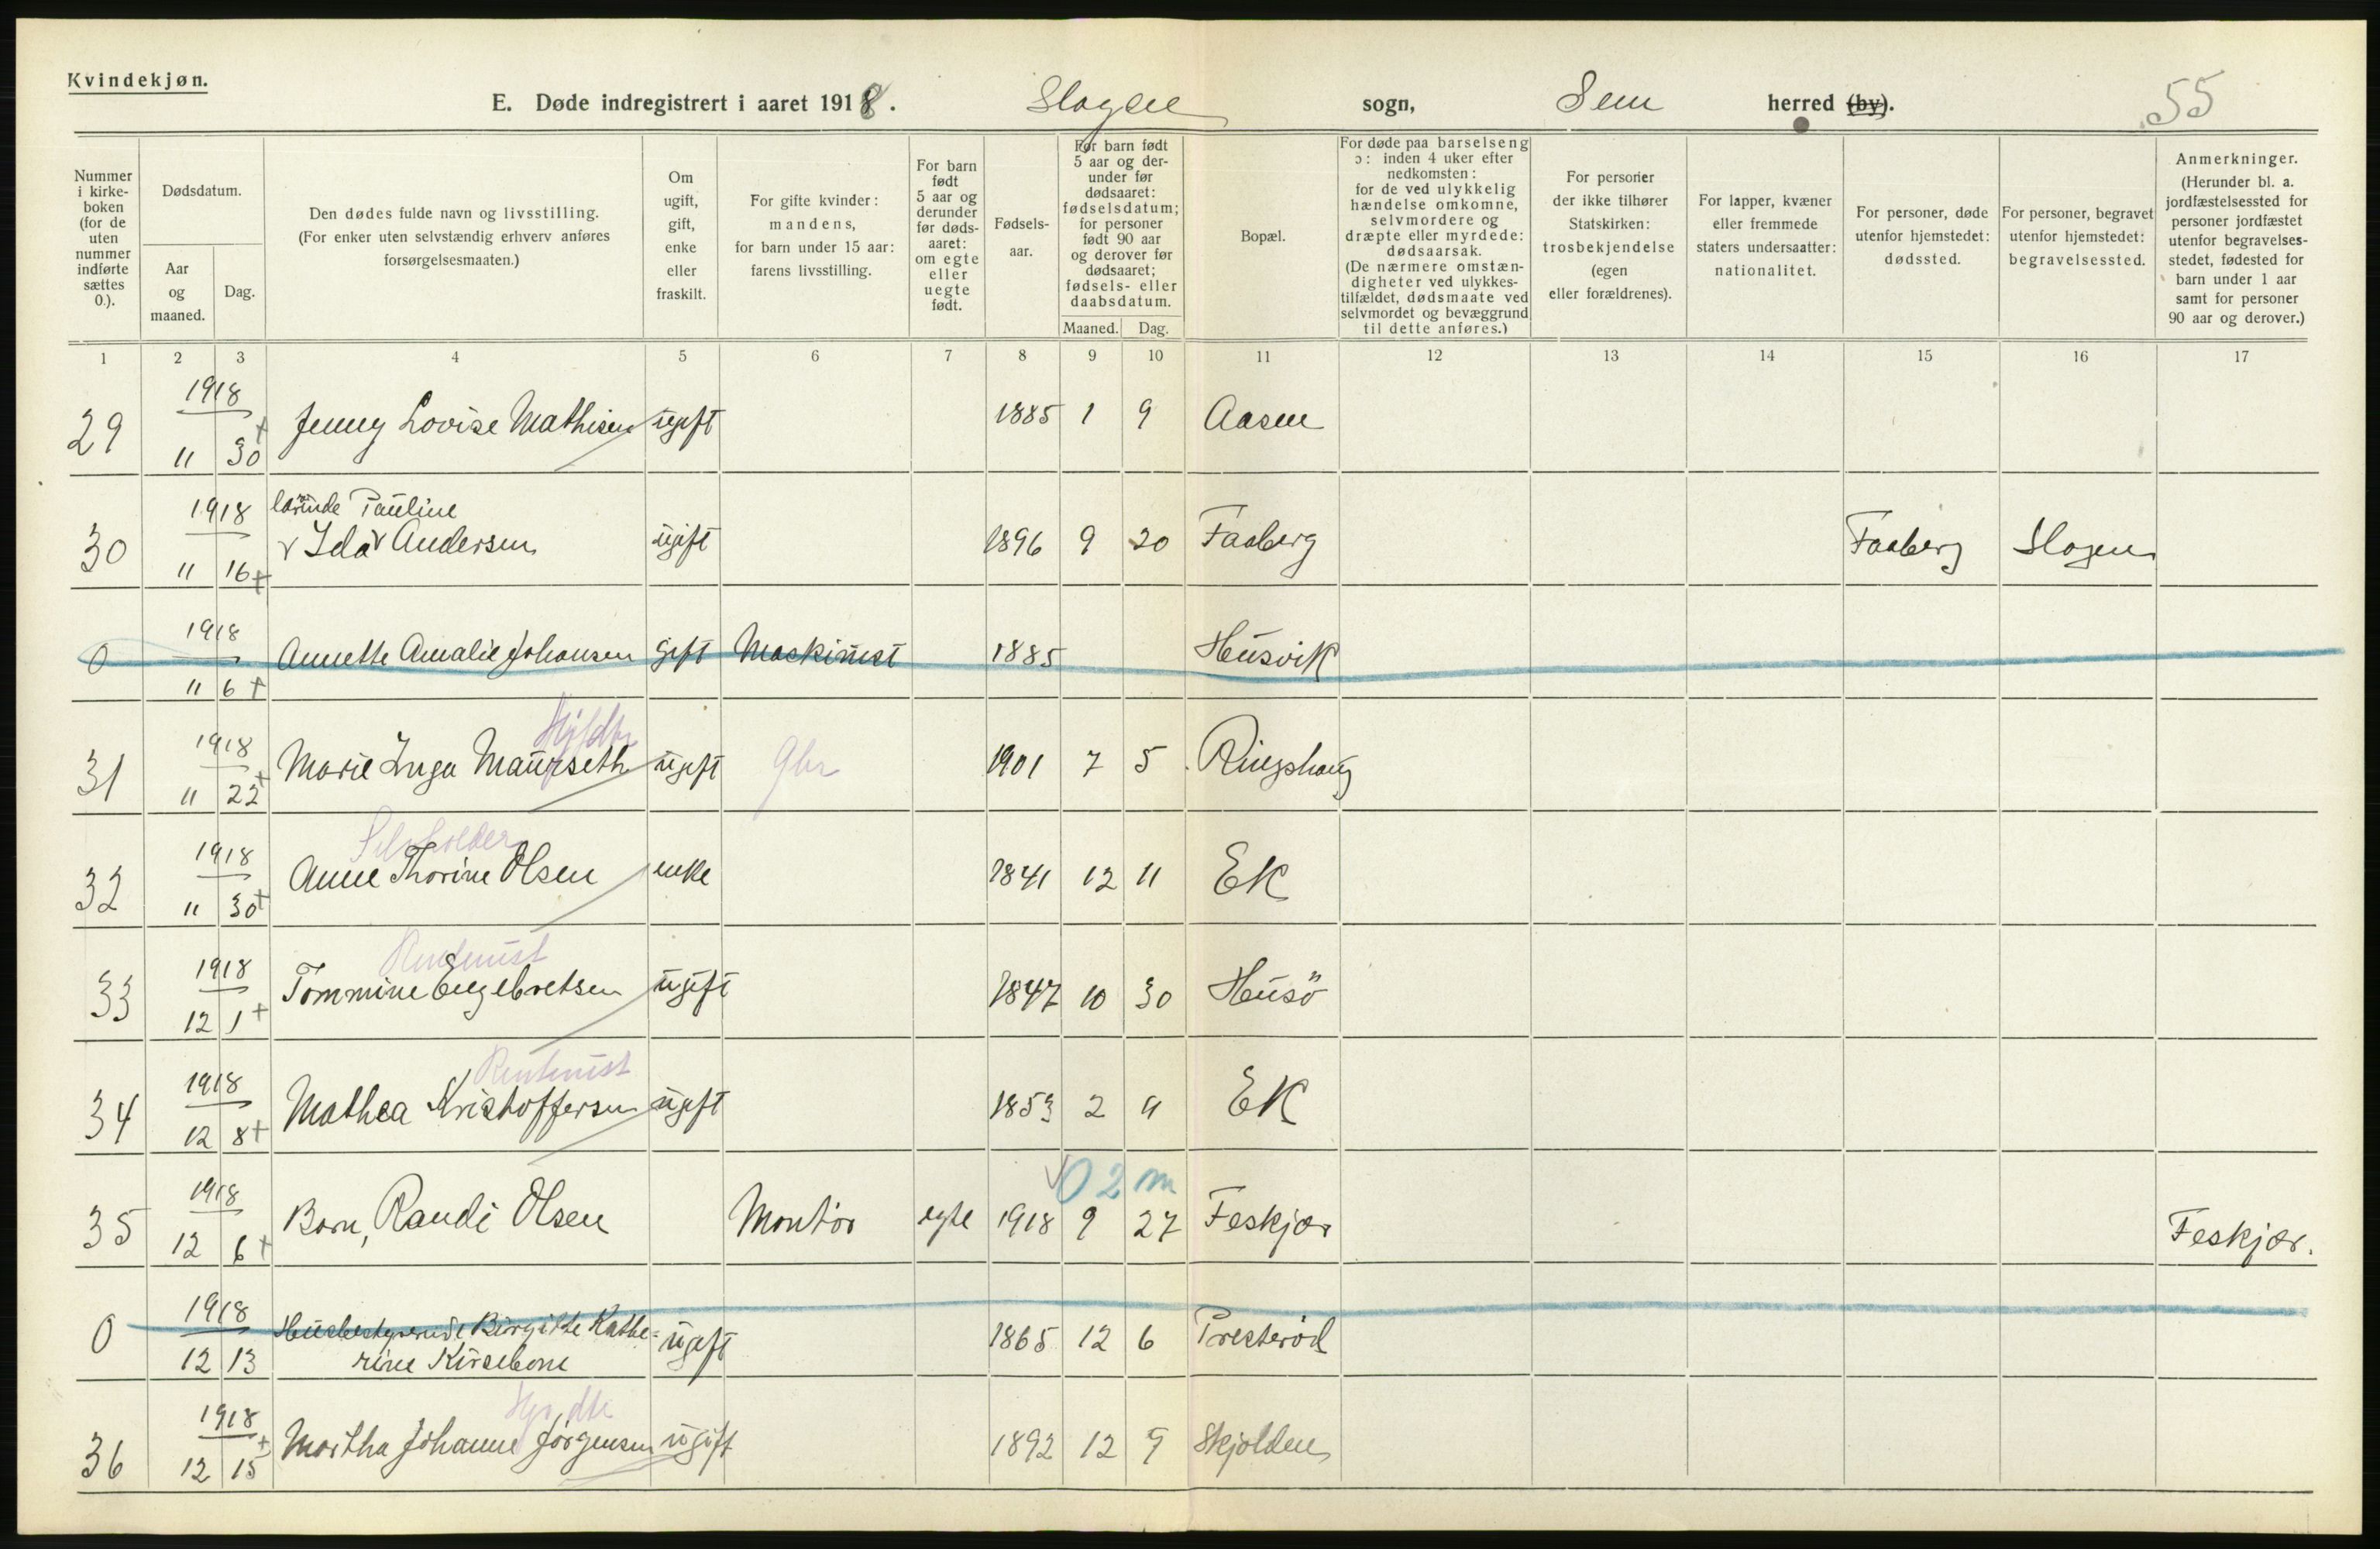 Kvindekjøn.
E. Døde indregistrert i aaret 1918. Slagen sogn, Sem herred (by). 55
Nummer i kirke-boken (for de uten nummer indførte sættes 0.).
Dødsdatum.
Aar og maaned.
Dag.
Den dødes fulde navn og livsstilling.
(For enker uten selvstændig erhverv anføres forsørgelsesmaaten.)
Om ugift, gift, enke eller fraskilt.
For gifte kvinder: mandens, for barn under 15 aar: farens livsstilling.
For barn født 5 aar og derunder før døds-aaret: om egte eller uegte født.
Fødsels-aar.
For barn født 5 aar og der-under før dødsaaret: fødselsdatum; for personer født 90 aar og derover før dødsaaret; fødsels- eller daabsdatum.
Maaned. Dag.
Bopæl.
For døde paa barselseng ɔ: inden 4 uker efter nedkomsten: for de ved ulykkelig hændelse omkomne, selvmordere og dræpte eller myrdede: dødsaarsak. (De nærmere omstæn-digheter ved ulykkes-tilfældet, dødsmaate ved selvmordet og bevæggrund til dette anføres.)
For personer der ikke tilhører Statskirken: trosbekjendelse (egen eller forældrenes).
For lapper, kvæner eller fremmede staters undersaatter: nationalitet.
For personer, døde utenfor hjemstedet: dødssted.
For personer, begravet utenfor hjemstedet: begravelsessted.
Anmerkninger. (Herunder bl. a. jordfæstelsessted for personer jordfæstet utenfor begravelses-stedet, fødested for barn under 1 aar samt for personer 90 aar og derover.)
1 2 3 4 5 6 7 8 9 10 11 12 13 14 15 16 17
29 1918 11 30 + Jenny Lovise Mathisen ugift 1885 1 9 Aasen
30 1918 11 16 + lærerinde Pauline
Ida Andersen ugift 1896 9 20 Faaberg Faaberg Slagen
0 1918 11 6 + Annette Amalie Johansen gift Maskinist 1885 Husvik
31 1918 11 22 + Marie Inga Maurseth ugift Gbr 1901 7 5 Ringshaug
Selvholder
32 1918 11 30 + Anne Thorine Olsen enke 1841 12 11 Ek
Rentenist
33 1918 12 1 + Tommine Engebretsen ugift 1847 10 30 Husö
Rentenist
34 1918 12 8 + Mathea Kristoffersen ugift 1853 2 11 Ek
0 2 m
35 1918 12 6 + Barn, Randi Olsen Montør egte 1918 9 27 Feskjær Feskjær.
0 1918 12 13 Husbestyrerinde Birgitte Kathe=
rine Kirsebom ugift 1865 12 6 Presterød
36 1918 12 15 + Martha Johanne Jørgensen ugift 1892 12 9 Skjolden